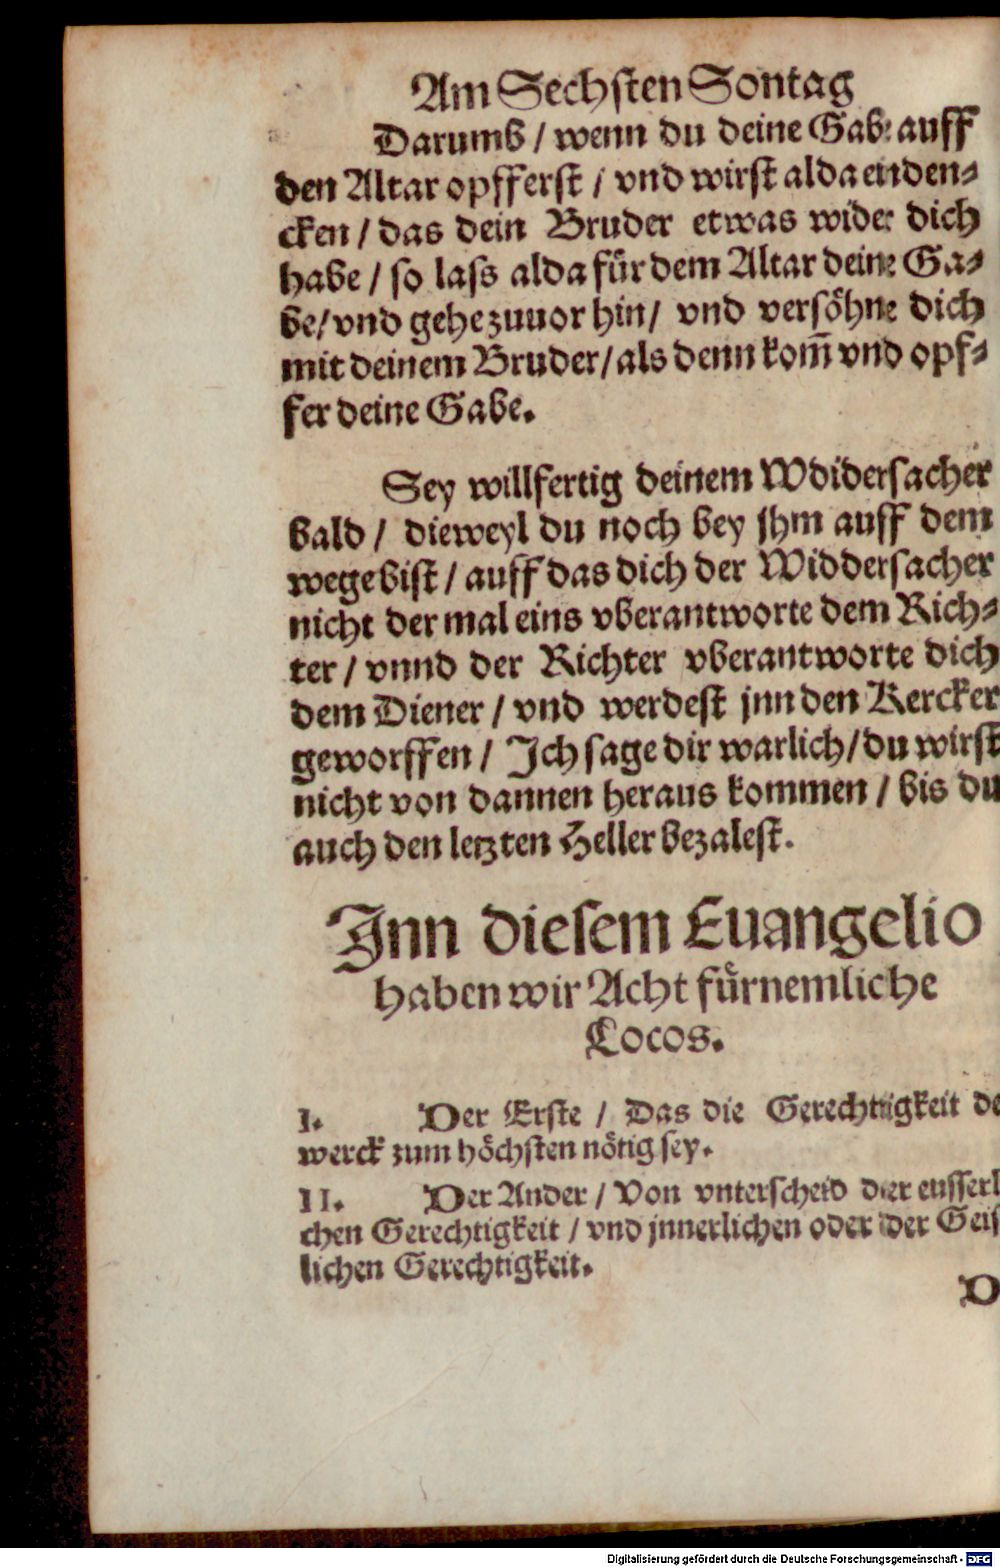 Am Sechsten Sontag
Darumb / wenn du deine Gabe auff
den Altar opfferst / vnd wirst alda einden-
cken / das dein Bruder etwas wider dich
habe / so lass alda für dem Altar deine Ga-
be/ vnd gehe zuuor hin/ vnd versöhne dich
mit deinem Bruder/ als denn kom̃ vnd opf-
fer deine Gabe.
Sey willfertig deinem Wdidersacher
bald / dieweyl du noch bey jhm auff dem
wege bist / auff das dich der Widdersacher
nicht der mal eins vberantworte dem Rich-
ter / vnnd der Richter vberantworte dich
dem Diener / vnd werdest jnn den Kercker
geworffen / Ich sage dir warlich/ du wirst
nicht von dannen heraus kommen / bis du
auch den letzten Heller bezalest.
Inn diesem Euangelio
haben wir Acht fürnemliche
Locos.
I. Der Erste / Das die Gerechtigkeit de
werck zum höchsten nötig sey.
II. Der Ander / Von vnterscheid der eusserl
chen Gerechtigkeit / vnd jnnerlichen oder der Geis
lichen Gerechtigkeit.
D
Digitalisierung gefördert durch die Deutsche Forschungsgemeinschaft - DFG